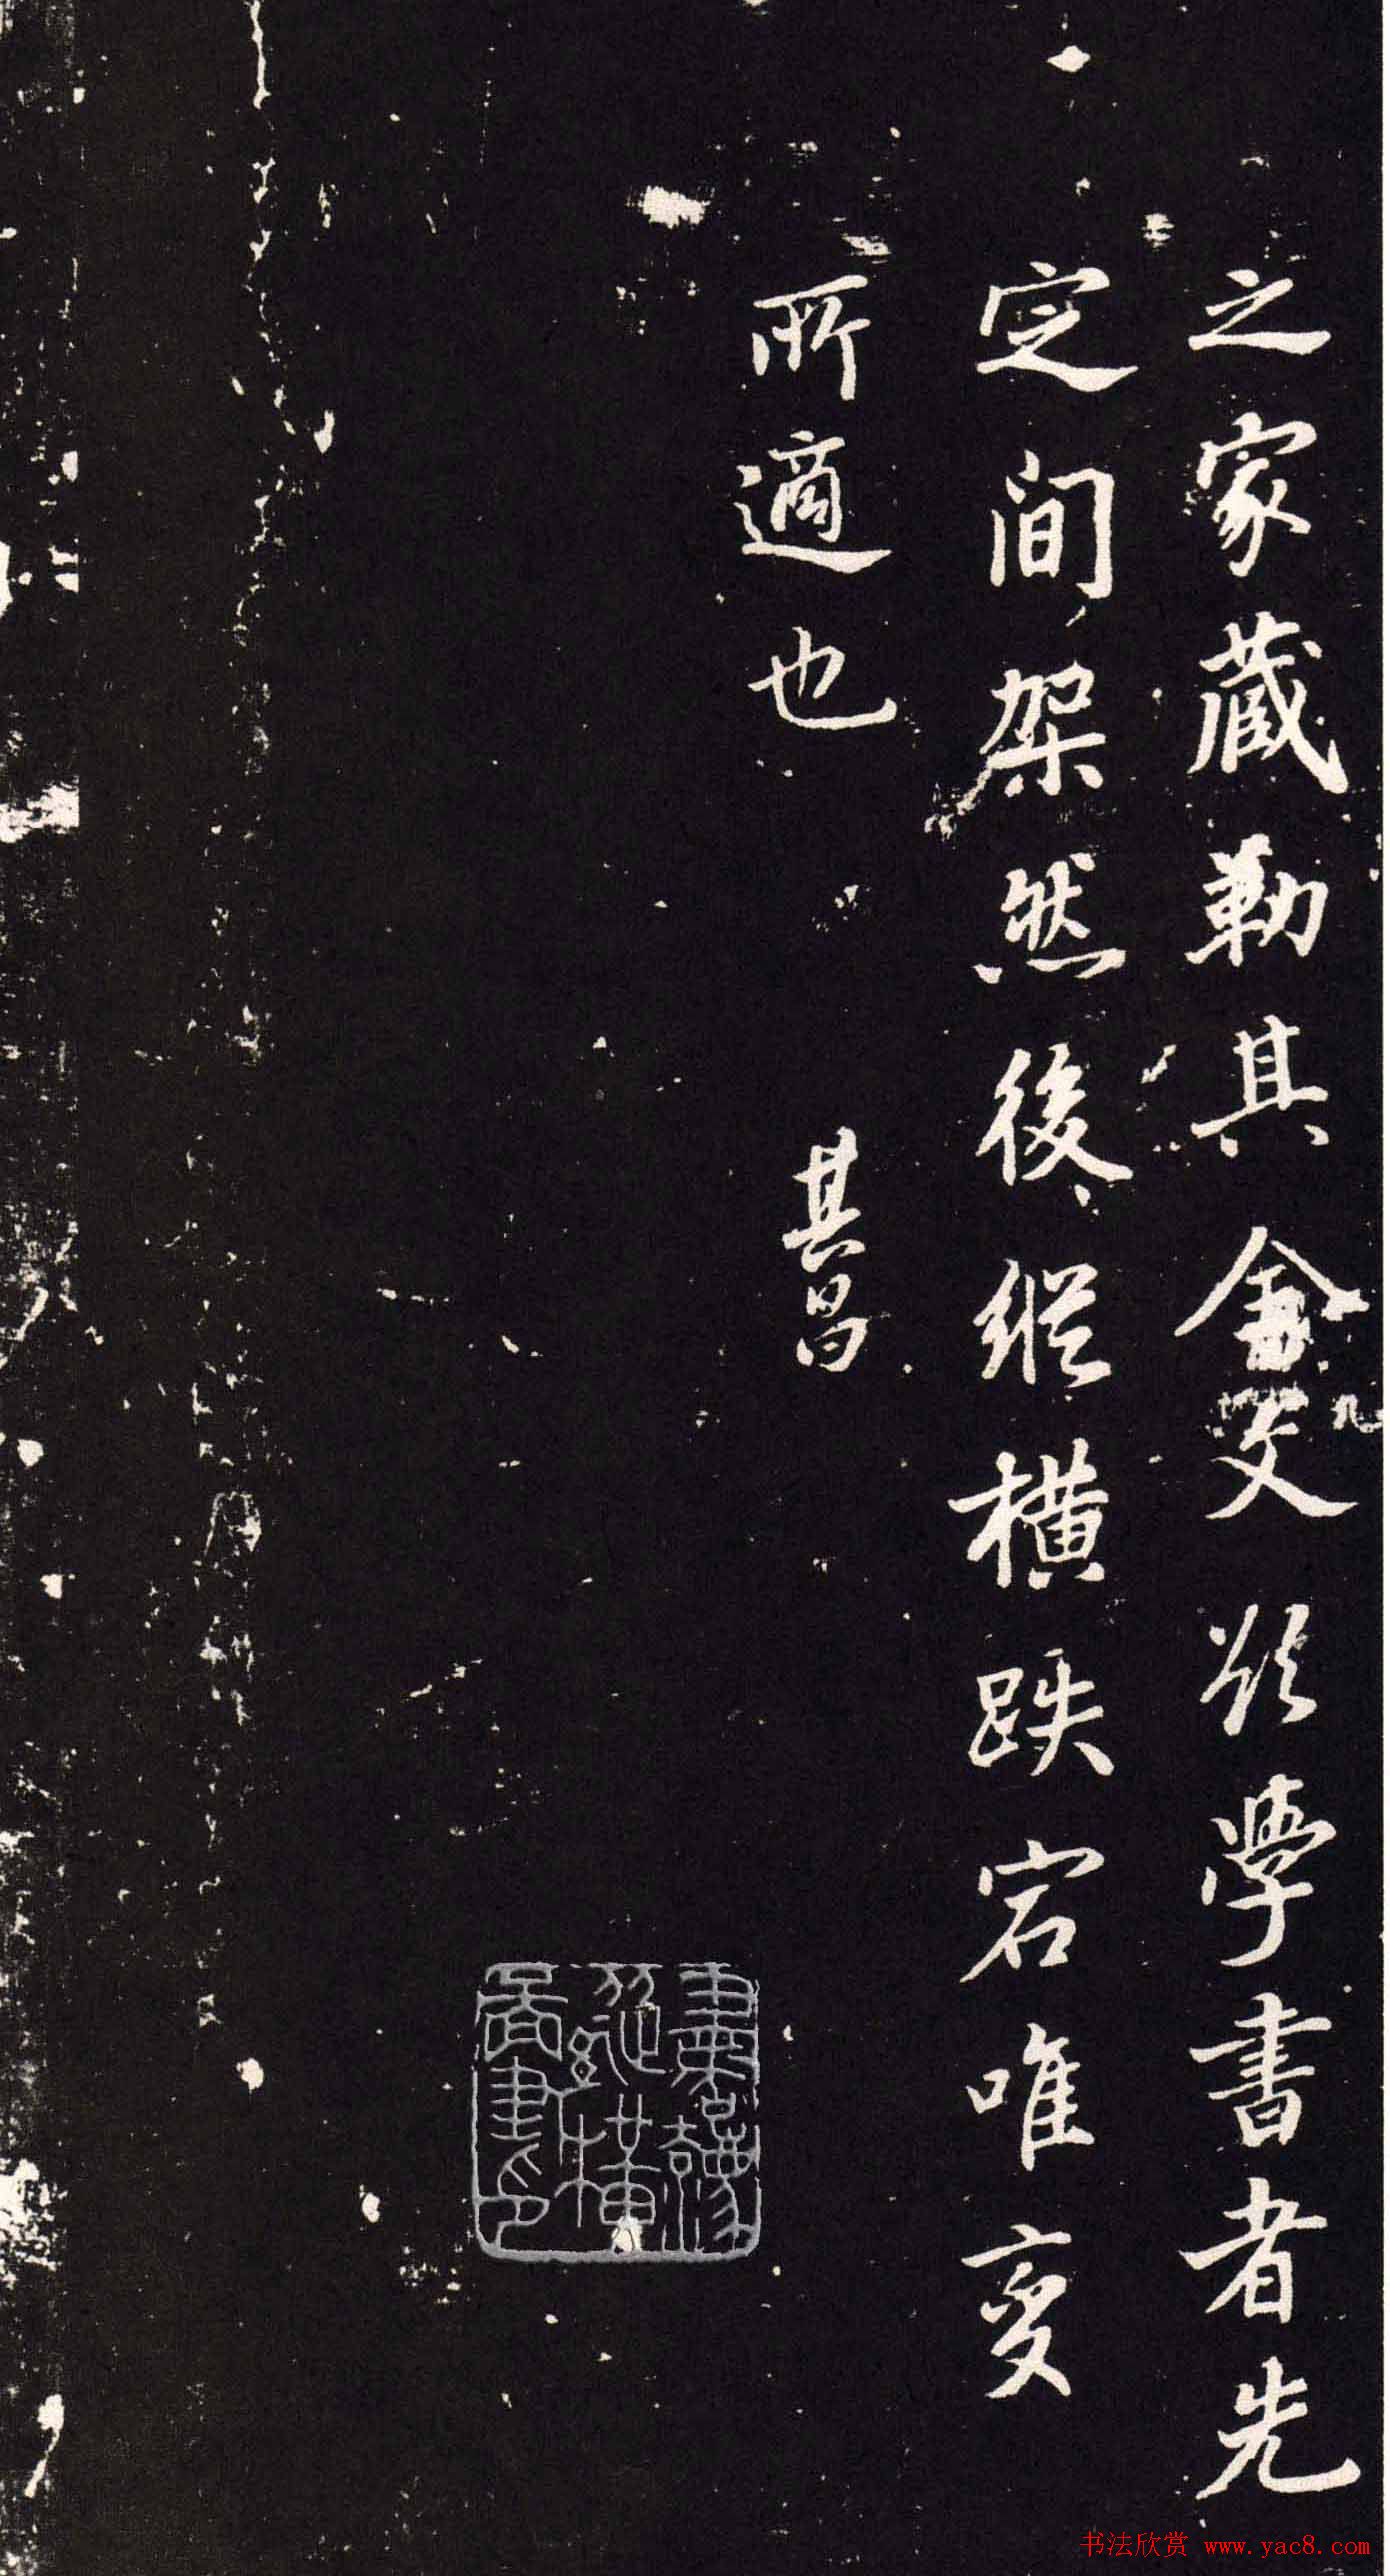 之家藏勒其全文欲学書者先
定间架然後縱橫跌宕唯变
所適也
其昌
書法欣赏 www.yac8.com